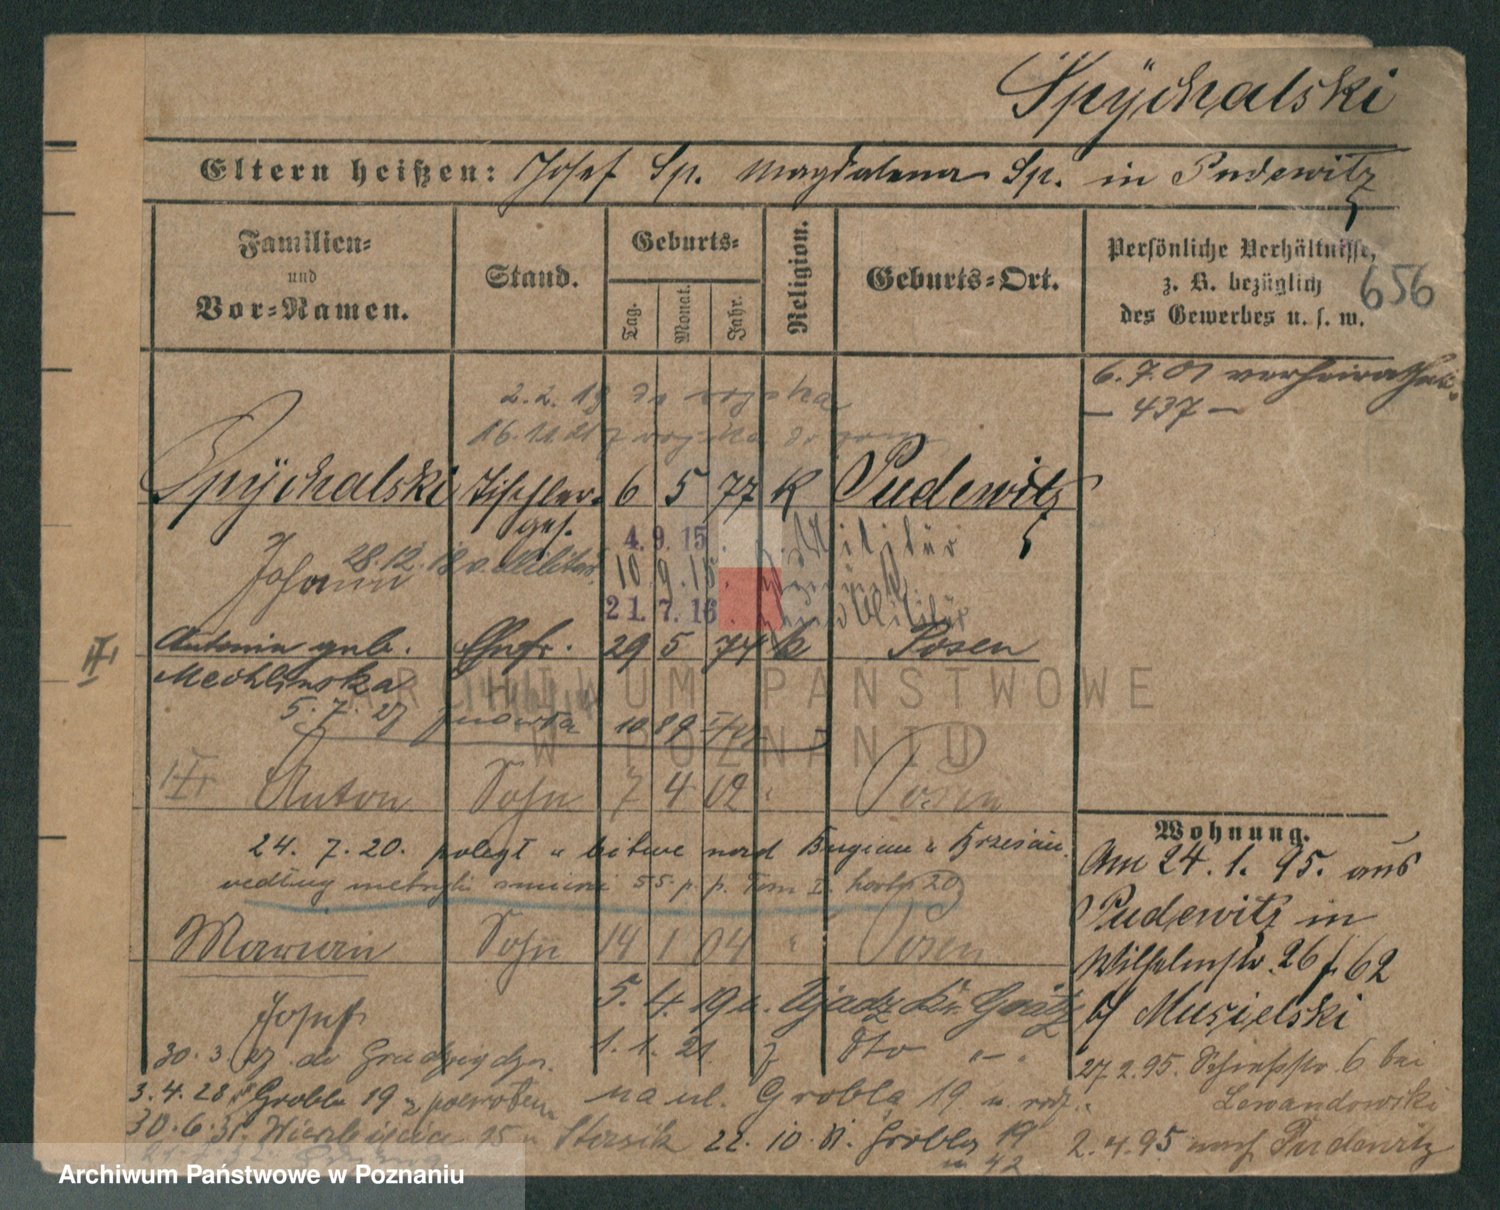 Spÿchalski
Eltern heißen: Josef Sp. Magdalena Sp. in Pudewitz
Familien-
und
Vor-Namen.
Stand.
Geburts-
Tag.
Monat.
Jahr.
Religion.
Geburts-Ort.
Persönliche Verhältnisse,
z. B. bezüglich
des Gewerbes u. s. w.
656
6. 7. 01 verheirathet.
— 437 —
2. 2. 19 do wojska
16. 11. 21 z wojska do
Spÿchalski Tischler- 6 5 77 K Pudewitz
ges.
4. 9. 15. z. Militär
Johann 28. 12. 18 v. Militär. 10. 9. 15. zurück
21. 7. 16. zum Militär
Antonie geb. Ehefr. 29 5 74 k Posen
Mechlinska
II
5. 7. 27
Anton Sohn 7 4 02 " Posen
24. 7. 20. poległ w bitwie nad Bugiem
według metryki 55. p. p. Tom I.
Maryan Sohn 14 1 04 " Posen
Josef 5. 4. 19 u. Ujazd Kr. Grätz
30. 3. 27 do 1. 1. 21 z dto "-"
3. 4. 28 Grobla 19 z powrotem na ul. Grobla 19 u. rodz.
30. 6. 31. 25 u Stasik 22. 10. 31. Grobla 19
m 42
Wohnung.
Am 24. 1. 95. aus
Pudewitz in
Wilhelmstr. 26 f. 62
bf Musielski
27. 2. 95. Schießstr. 6 bei
Lewandowski
2. 4. 95 nach Pudewitz
ARCHIWUM PAŃSTWOWE
W POZNANIU
Archiwum Państwowe w Poznaniu